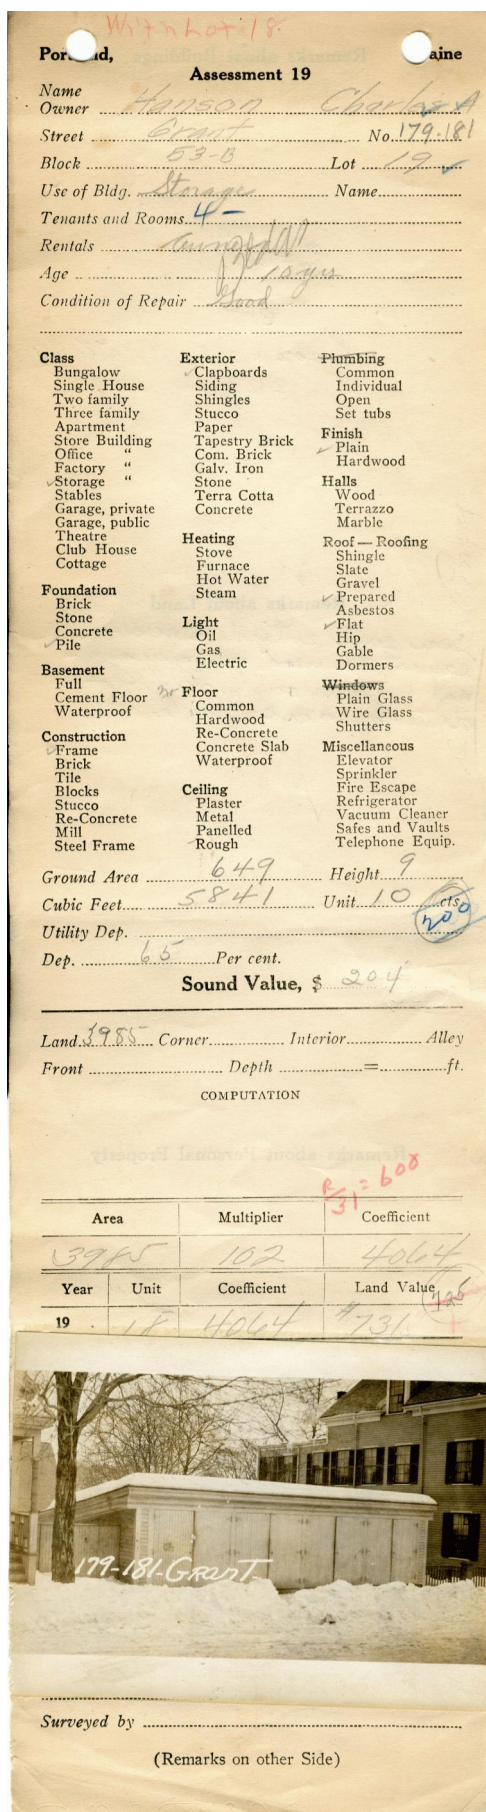 With Lot 18.
Portland, Maine
Assessment 19
Name
Owner Hanson Charles A
Street Grant No. 179-181
Block 53-B Lot 19
Use of Bldg. Storage Name
Tenants and Rooms 4 -
Rentals
Age 10 yrs
Condition of Repair Good
Class
Bungalow
Single House
Two family
Three family
Apartment
Store Building
Office "
Factory "
✓Storage "
Stables
Garage, private
Garage, public
Theatre
Club House
Cottage
Foundation
Brick
Stone
Concrete
✓Pile
Basement
Full
Cement Floor
Waterproof
Construction
✓Frame
Brick
Tile
Blocks
Stucco
Re-Concrete
Mill
Steel Frame
Exterior
✓Clapboards
Siding
Shingles
Stucco
Paper
Tapestry Brick
Com. Brick
Galv. Iron
Stone
Terra Cotta
Concrete
Heating
Stove
Furnace
Hot Water
Steam
Light
Oil
Gas
Electric
no Floor
Common
Hardwood
Re-Concrete
Concrete Slab
Waterproof
Ceiling
Plaster
Metal
Panelled
✓Rough
Plumbing
Common
Individual
Open
Set tubs
Finish
✓Plain
Hardwood
Halls
Wood
Terrazzo
Marble
Roof — Roofing
Shingle
Slate
Gravel
✓Prepared
Asbestos
✓Flat
Hip
Gable
Dormers
Windows
Plain Glass
Wire Glass
Shutters
Miscellaneous
Elevator
Sprinkler
Fire Escape
Refrigerator
Vacuum Cleaner
Safes and Vaults
Telephone Equip.
Ground Area 649 Height 9
Cubic Feet 5841 Unit 10 cts.
200
Utility Dep.
Dep. 65 Per cent.
Sound Value, $ 204
Land 3985 Corner Interior Alley
Front Depth = ft.
COMPUTATION
R/31 = 600
Area Multiplier Coefficient
3985 102 4064
Year Unit Coefficient Land Value
725
19 18 4064 $731
179-181-GRANT-
Surveyed by
(Remarks on other Side)